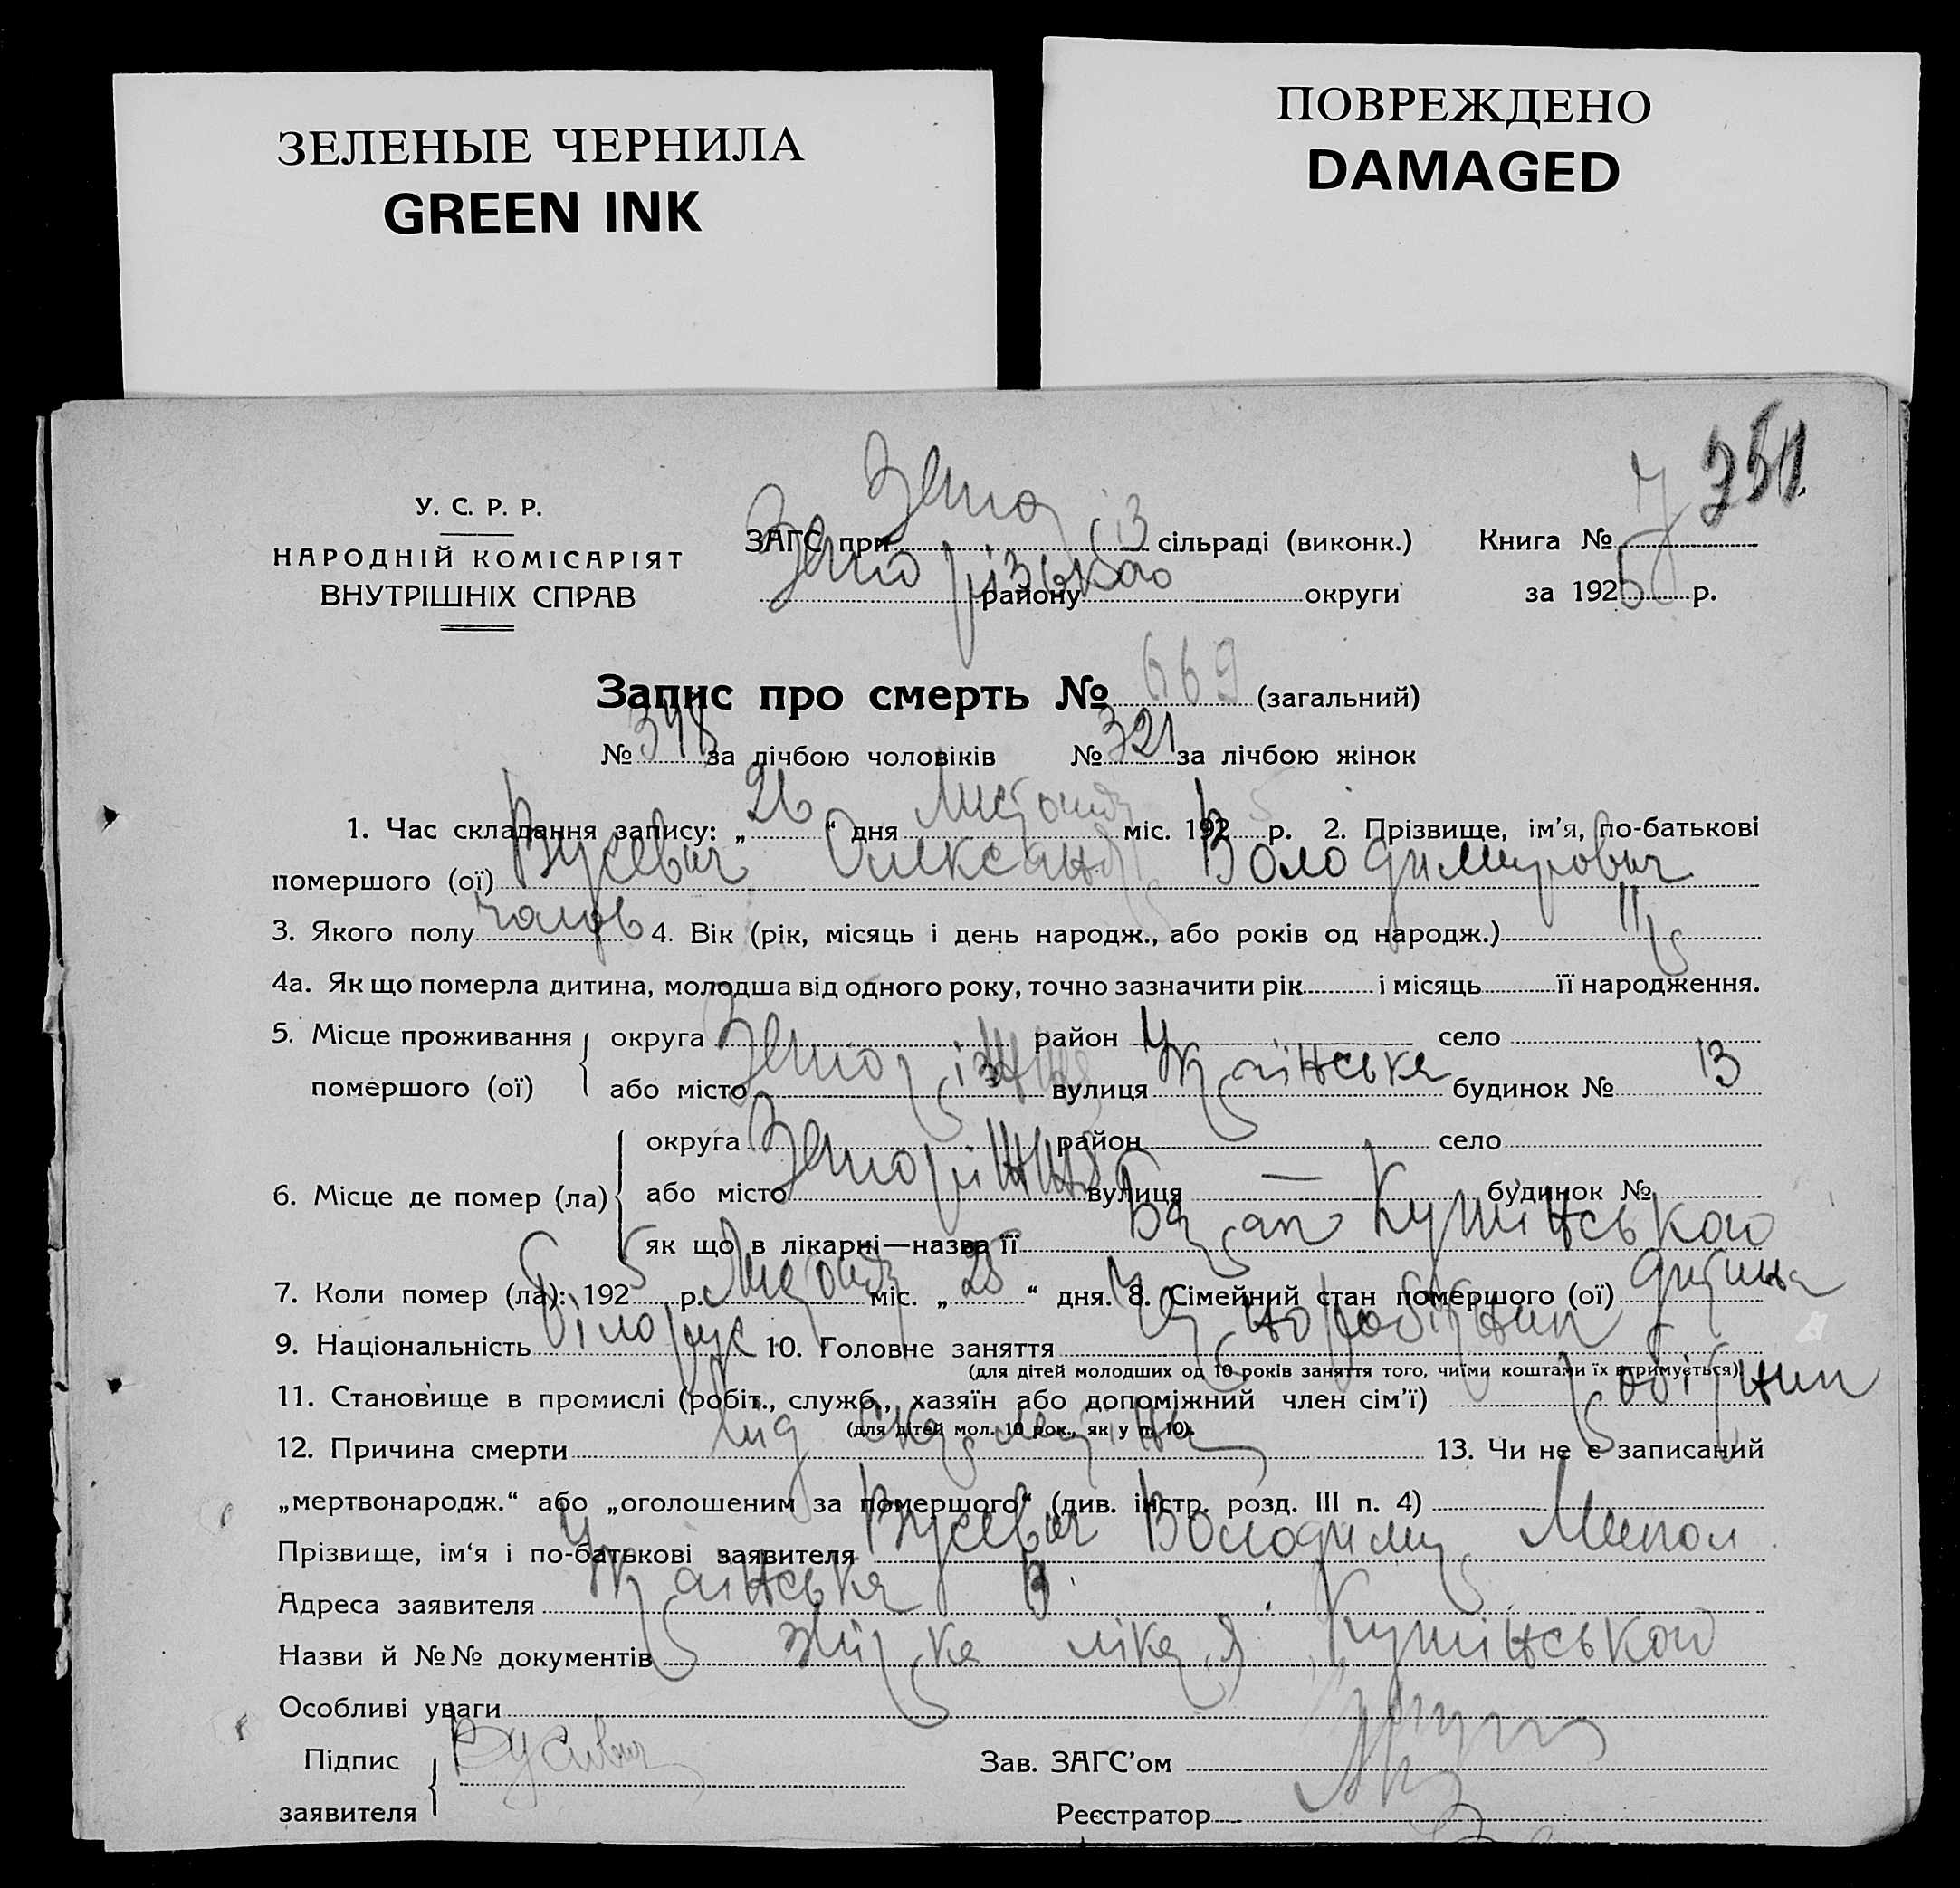 ЗЕЛЕНЫЕ ЧЕРНИЛА
GREEN INK
ПОВРЕЖДЕНО
DAMAGED
У. С. Р. Р.
НАРОДНІЙ КОМІСАРІЯТ
ВНУТРІШНІХ СПРАВ
ЗАГС при сільраді (виконк.)
району округи
Книга № 7
за 1925 р.
751
Запис про смерть № 669 (загальний)
№ 348 за лічбою чоловіків № 321 за лічбою жінок
1. Час складання запису: „26“ дня міс. 1925 р. 2. Прізвище, ім’я, по-батькові
помершого (ої) Русевич Олександр Володимирович
3. Якого полу чолов 4. Вік (рік, місяць і день народж., або років од народж.)
4а. Як що померла дитина, молодша від одного року, точно зазначити рік і місяць її народження.
5. Місце проживання помершого (ої) округа район село
або місто Запоріжжя вулиця Українська будинок № 13
6. Місце де помер (ла) округа район село
або місто Запоріжжя вулиця — будинок №
як що в лікарні—назва її Кушінського
7. Коли помер (ла): 1925 р. міс. „25“ дня. 8. Сімейний стан помершого (ої) дитина
9. Національність Білорус 10. Головне заняття Чорноробітник
(для дітей молодших од 10 років заняття того, чиїми коштами їх втримується)
11. Становище в промислі (робіт., служб., хазяїн або допоміжний член сім’ї) робітник
(для дітей мол. 10 рок., як у п. 10).
12. Причина смерти Від скарлатіни 13. Чи не є записаний
„мертвонародж.“ або „оголошеним за помершого“ (див. інстр. розд. III п. 4)
Прізвище, ім‘я і по-батькові заявителя Русевич Володимир Микол
Адреса заявителя Українська 13
Назви й №№ документів лікаря Кушінського
Особливі уваги
Підпис заявителя Русевич
Зав. ЗАГС’ом
Реєстратор